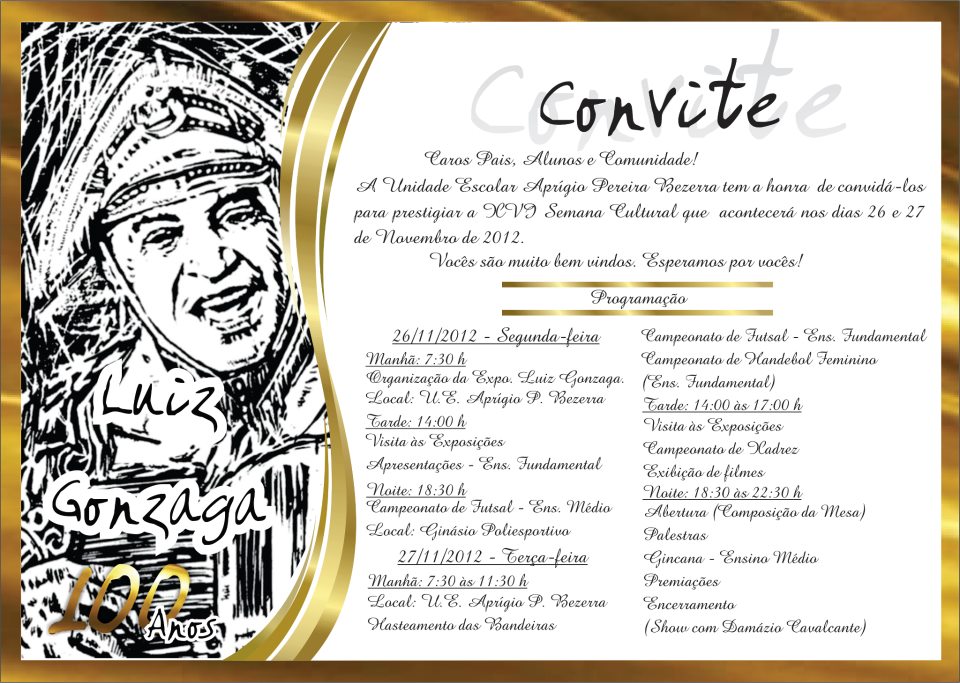 Convite
Caros Pais, Alunos e Comunidade!
A Unidade Escolar Aprígio Pereira Bezerra tem a honra de convidá-los
para prestigiar a XVI Semana Cultural que acontecerá nos dias 26 e 27
de Novembro de 2012.
Vocês são muito bem vindos. Esperamos por vocês!
Programação
26/11/2012 - Segunda-feira
Manhã: 7:30 h
Organização da Expo. Luiz Gonzaga.
Local: U.E. Aprígio P. Bezerra
Tarde: 14:00 h
Visita às Exposições
Apresentações - Ens. Fundamental
Noite: 18:30 h
Campeonato de Futsal - Ens. Médio
Local: Ginásio Poliesportivo
27/11/2012 - Terça-feira
Manhã: 7:30 às 11:30 h
Local: U.E. Aprígio P. Bezerra
Hasteamento das Bandeiras
Campeonato de Futsal - Ens. Fundamental
Campeonato de Handebol Feminino
(Ens. Fundamental)
Tarde: 14:00 às 17:00 h
Visita às Exposições
Campeonato de Xadrez
Exibição de filmes
Noite: 18:30 às 22:30 h
Abertura (Composição da Mesa)
Palestras
Gincana - Ensino Médio
Premiações
Encerramento
(Show com Damázio Cavalcante)
Luiz
Gonzaga
100
Anos